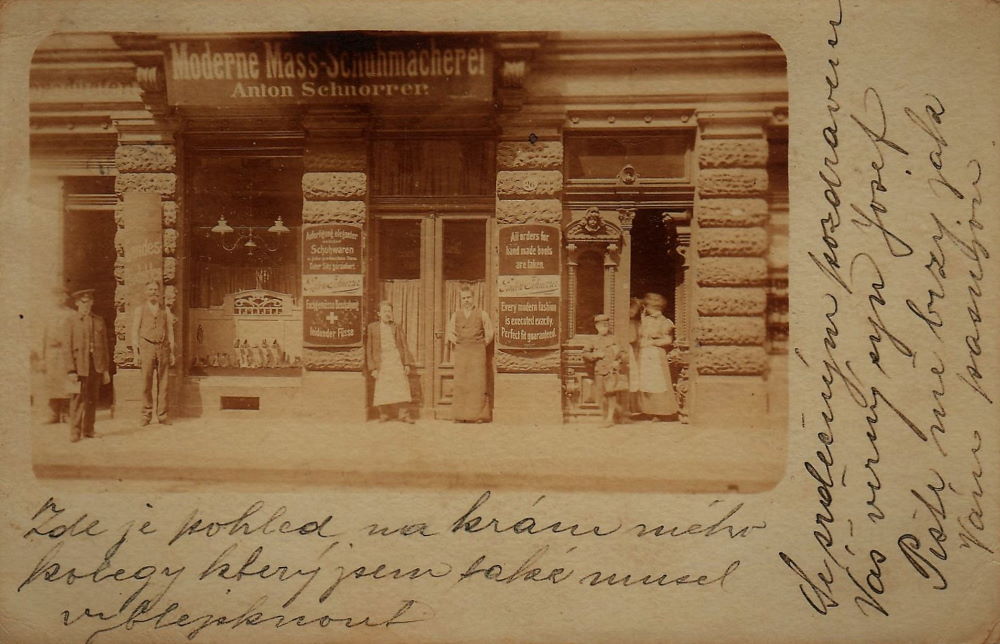 Moderne Mass-Schuhmacherei
Anton Schnorrer.
Anfertigung eleganter
Schuhwaren
Guter Sitz garantiert.
Fachgemässe Bearbeitung
leidender Füsse
26
All orders for
hand made boots
are taken.
Anton Schnorrer
Every modern fashion
is executed exactly.
Perfect fit guaranteed.
Zde je pohled na krám mého
kolegy který jsem také musel
vyblejsknout
Se srdečným pozdravem
Váš věrný syn Josef
Pište mě brzy jak
Vám